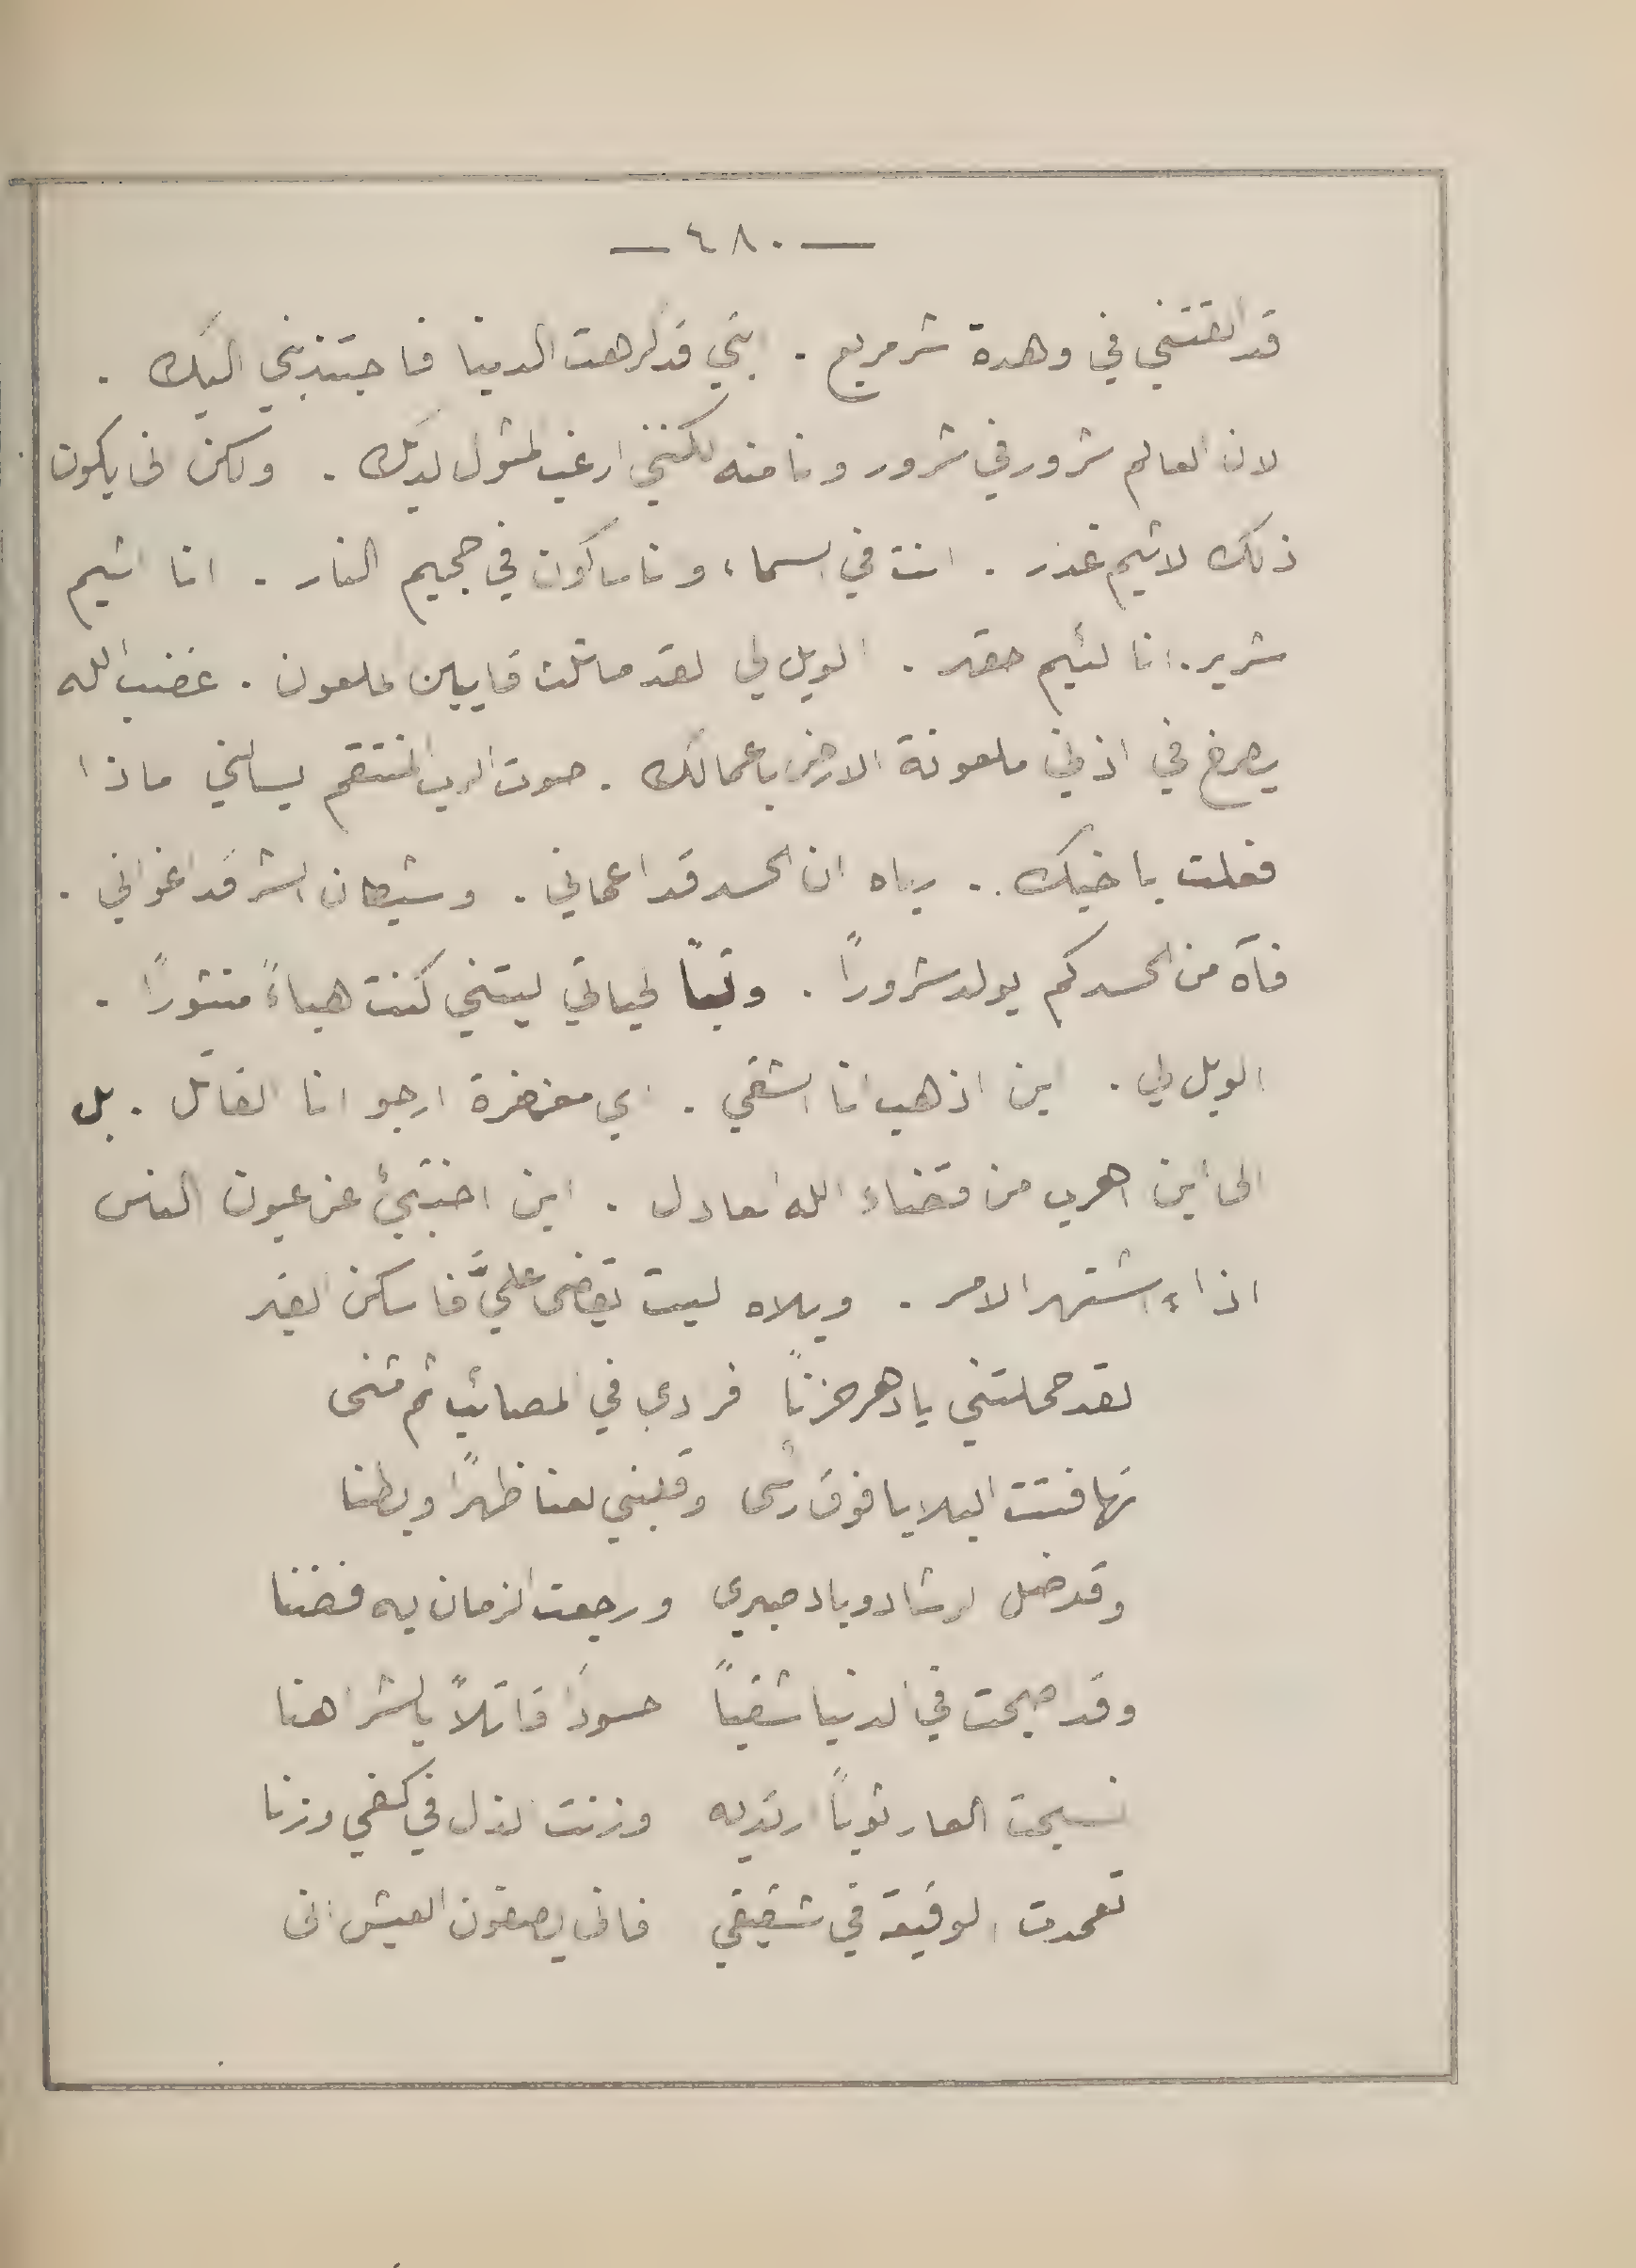 — ٤٨٠ —
قد القتني في وهدة شر مريع . ابني قد كرهت الدينا فاجتذبني اليك .
لان العالم شرور في شرور وانا منه لكنني ارغب المثول لديك . ولكن انى يكون
ذلك لاثيم غدر . انت في السماء وانا ساكون في جحيم النار . انا اثيم
شرير . انا لئيم حقد . الويل لي لقد ماثلت قايين الملعون . غضب الله
يصرخ في اذني ملعونة الارض باعمالك . صوت الرب المنتقم يسالني ماذا
فعلت باخيك .. رباه ان الحسد قد اعماني . وشيطان الشر قد اغواني .
فآه من الحسد كم يولد شروراً . وتباً لحياتي ليتني كنت هباءً منثوراً .
الويل لي . اين اذهب انا الشقي . اي مغفرة ارجو انا القاتل . بل
الى أين اهرب من قضاء الله العادل . اين اختبئ عن عيون الناس
اذا اشتهر الامر . ويلاه ليت يقضى عليَّ فاسكن القبر
لقد حملتني يا دهر حزناً فرادى في المصائب ثم مثنى
تهافتت البلايا فوق رأسى وقلبني العنا ظهراً وبطنا
وقد ضل الرشاد وباد صبري ورجعت الزمان به فضنا
وقد اصبحت في الدنيا شقياً حسوداً قاتلاً بالشر اهنا
نسجت العار ثوباً ارتديه وزنت الذل في كفي وزنا
تعمدت الوقيعة في شقيقي فانى يصفون العيش انى